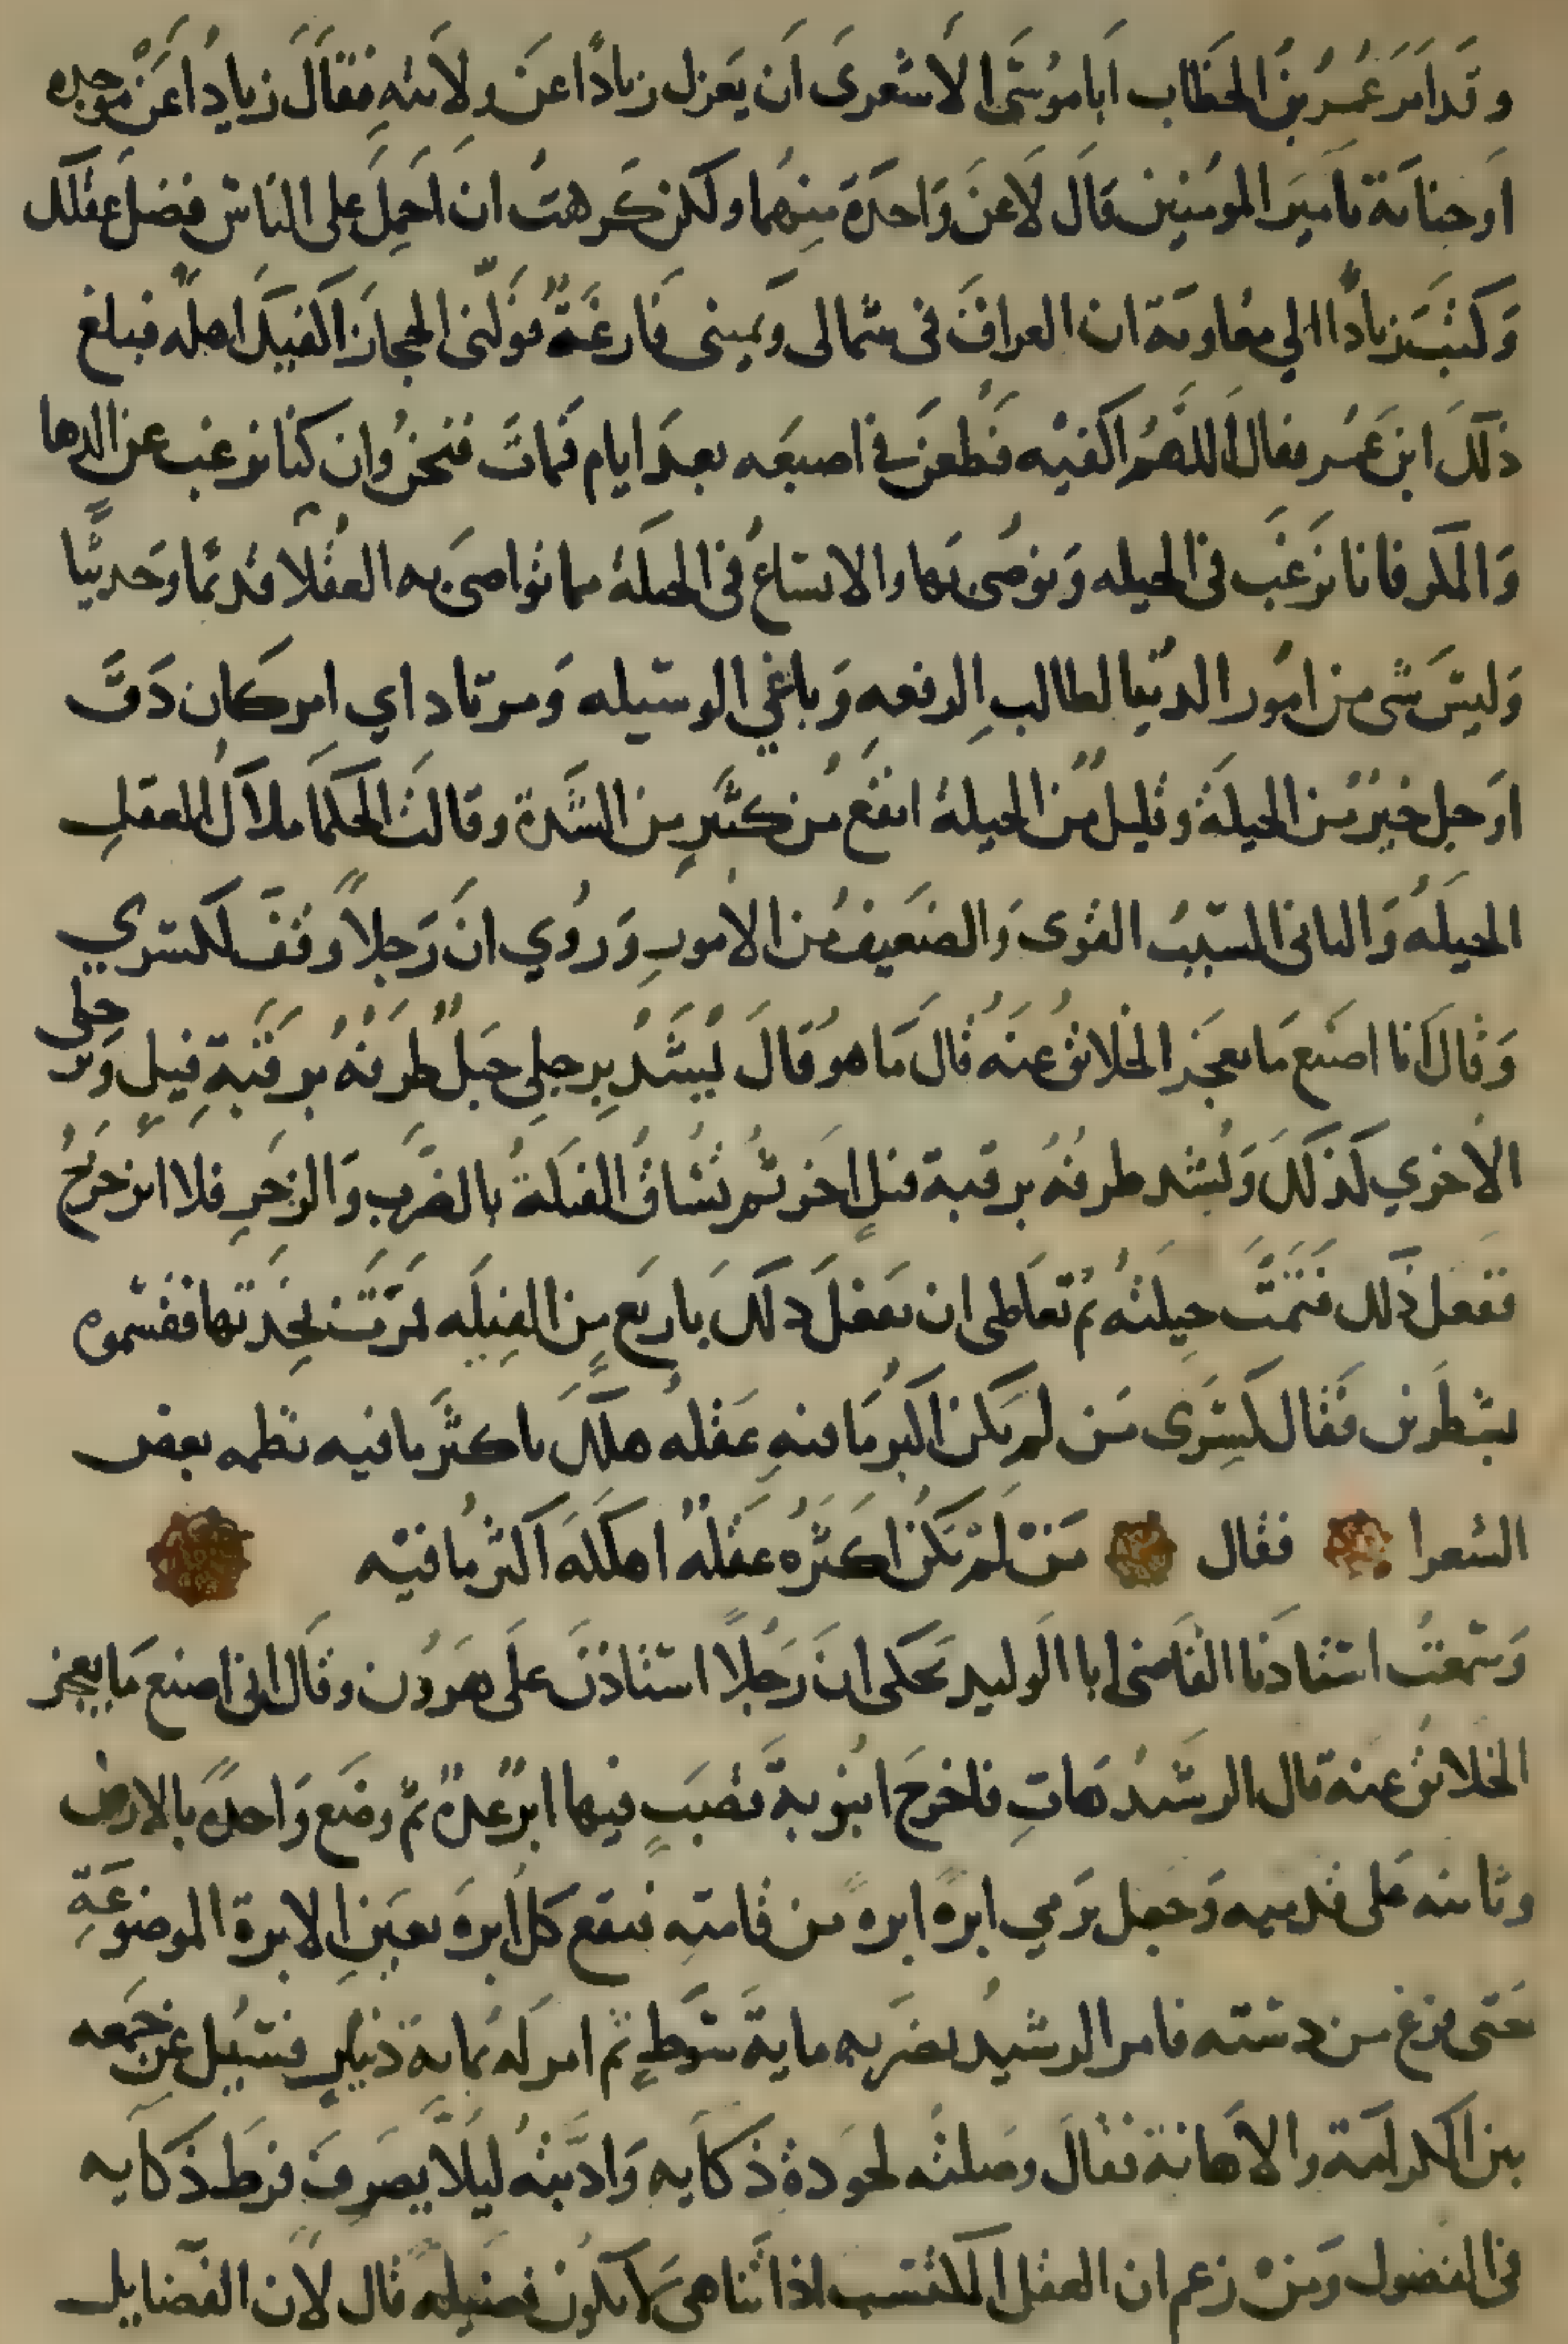 وقد امر عمر بن الخطاب ابا موسى الاشعرى ان يعزل زيادا عن ولايته فقال زياد اعن موجده
او خيانة يا امير المومنين قال لا عن واحدة منهما ولكن كرهت ان احمل على الناس فضل عقلك
وكتب زيادا الي معاوية ان العراق في شمالى ويمينى فارغة فولنى الحجاز اكفيك اهله فبلغ
ذلك ابن عمر فقال اللهم اكفيه فطعن في اصبعه بعد ايام فمات فنحن وان كنا نرغب عن الدها
والمكر فاننا نرغب فى الحيله ونوصى بها والاتساع فى الحيلة مما تواصى به العقلا قديما وحديثا
وليس شى من امور الدنيا لطالب الرفعه وباغي الوسيله ومرتاد اي امر كان دق
او جل خير من الحيلة وقليل من الحيلة انفع من كثير من الشدة وقالت الحكما ملاك العقل
الحيله والتانى المسبب القوى والضعيف من الامور وروي ان رجلا وقف لكسري
وقال انا اصنع ما يعجز الخلائق عنه قال ما هو قال يشد برجلي حبل طرفه برقبة فيل وبرجلى
الاخري كذلك ويشد طرفه برقبة فيل اخر ثم تساق الفيلة بالضرب والزجر فلا اتزحزح
ففعل ذلك فتمت حيلته ثم تعاطى ان يفعل ذلك باربع من الفيله مرت بنجدتها فقسموه
بشطرين فقال كسرى من لم يكن اكبر ما فيه عقله هلك باكثر ما فيه نظمه بعض
الشعرا فقال من لم يكن اكثره عقله اهلكه اكثر ما فيه
وسمعت استاذنا القاضى ابا الوليد يحكى ان رجلا استاذن على هرون وقال انى اصنع ما يعجز
الخلائق عنه قال الرشيد هات فاخرج انبوبة فصب فيها ابر عدة ثم وضع واحدة بالارض
وثانيه على قدميه وجعل يرمي ابرة ابرة من قامته فتقع كل ابرة بعين الابرة الموضوعة
حتى فرغ من دسته فامر الرشيد بضربه ماية سوط ثم امر له بماية دينار فسيل عن جمعه
بين الكرامة والاهانة فقال وصلته لجودة ذكايه وادبته ليلا يصرف فرط ذكايه
فى الفضول ومن زعم ان العقل المكتسب اذا تناهى لا يكون فضيله قال لان الفضايل